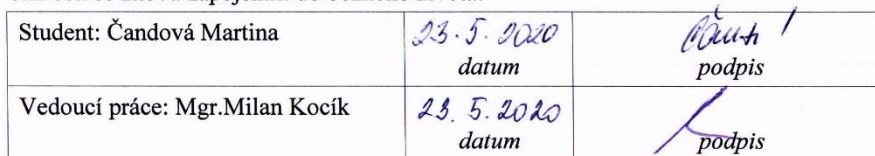 Student: Čandová Martina 23.5.2020
datum podpis
Vedoucí práce: Mgr.Milan Kocík 23. 5. 2020
datum podpis